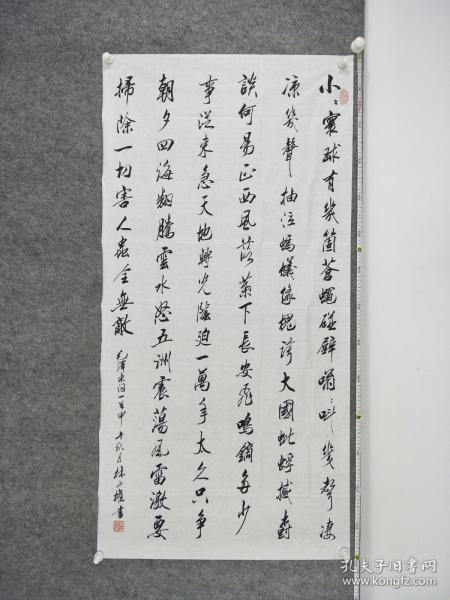 小〻寰球有幾箇蒼蠅碰壁嗡〻叫幾聲凄
凉幾聲抽泣螞蟻緣槐誇大國蚍蜉撼樹
談何易正西風落葉下長安飛鳴鏑多少
事從來急天地轉光陰迫一萬年太久只争
朝夕四海翻騰雲水怒五洲震蕩風雷激要
掃除一切害人蟲全無敵
毛澤東詞一首甲午秋月林書
孔夫子旧书网
www.kongfz.com